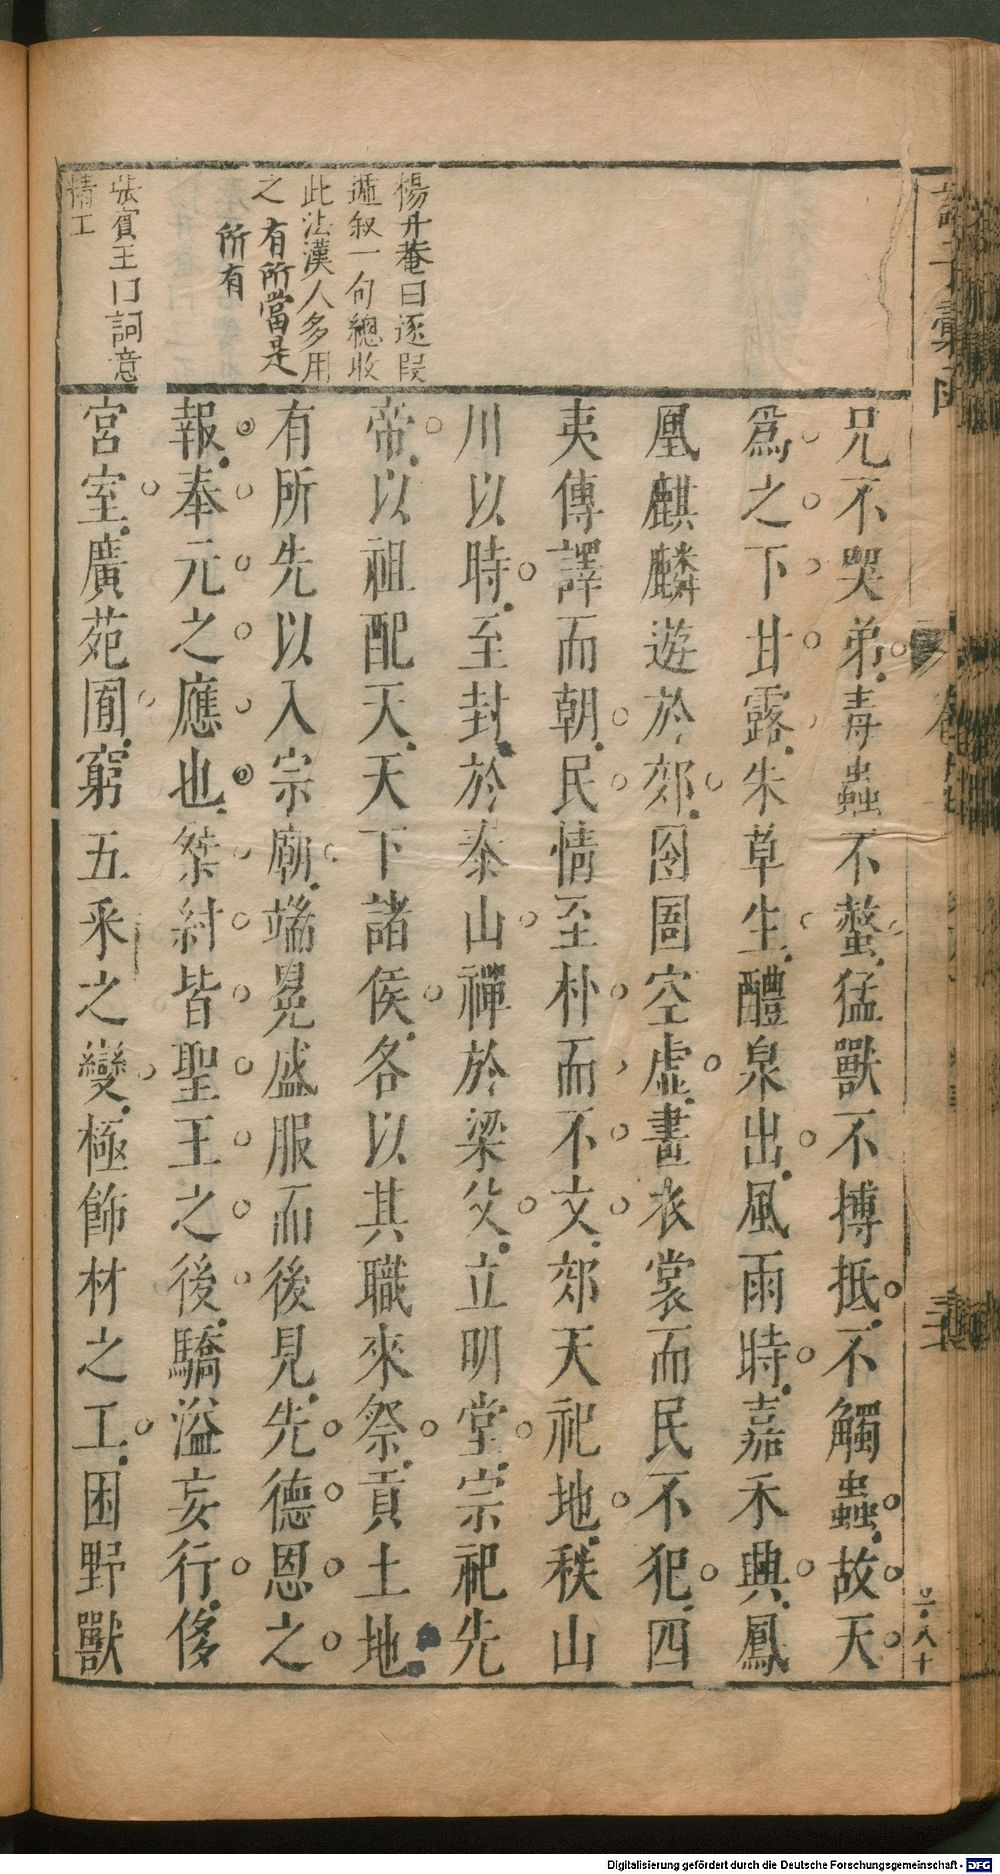 楊升菴曰逐段
遞叙一句總收
此法漢人多用
之 有所當是
所有
張賓王曰詞意
精工
兄不哭弟毒蟲不螫猛獸不搏抵不觸蟲故天
爲之下甘露朱草生醴泉出風雨時嘉禾興鳳
凰麒麟遊於郊囹圄空虛畫衣裳而民不犯四
夷傳譯而朝民情至朴而不文郊天祀地秩山
川以時至封於泰山禪於梁父立明堂宗祀先
帝以祖配天天下諸侯各以其職來祭貢土地
有所先以入宗廟端冕盛服而後見先德恩之
報奉元之應也桀紂皆聖王之後驕溢妄行侈
宮室廣苑囿窮五采之變極飾材之工困野獸
Digitalisierung gefördert durch die Deutsche Forschungsgemeinschaft - DFG